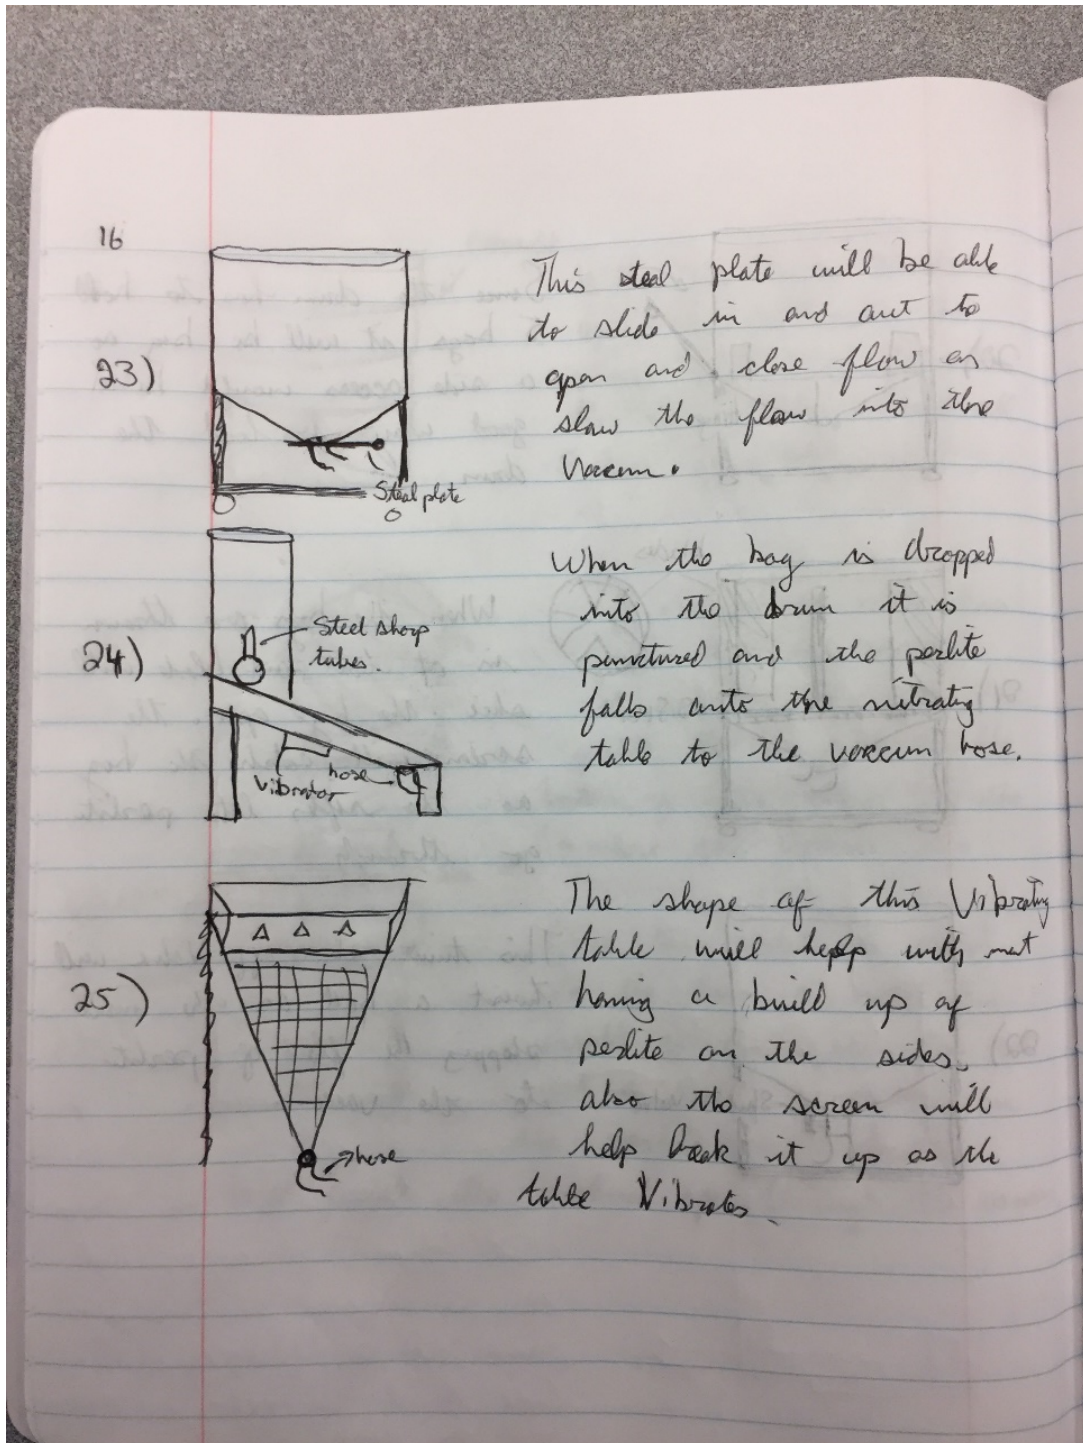 16
23)
This steal plate will be able
to slide in and out to
open and close flow or
slow the flow into the
Vaccum.
Steal plate
24)
Steel sharp
tubes.
Vibrator
hose
When the bag is dropped
into the drum it is
punctured and the perlite
falls onto the
table to the vaccum hose.
25)
hose
The shape of this Vibrating
table will help with not
having a build up of
perlite on the sides.
also the screen will
help break it up as the
table Vibrates.